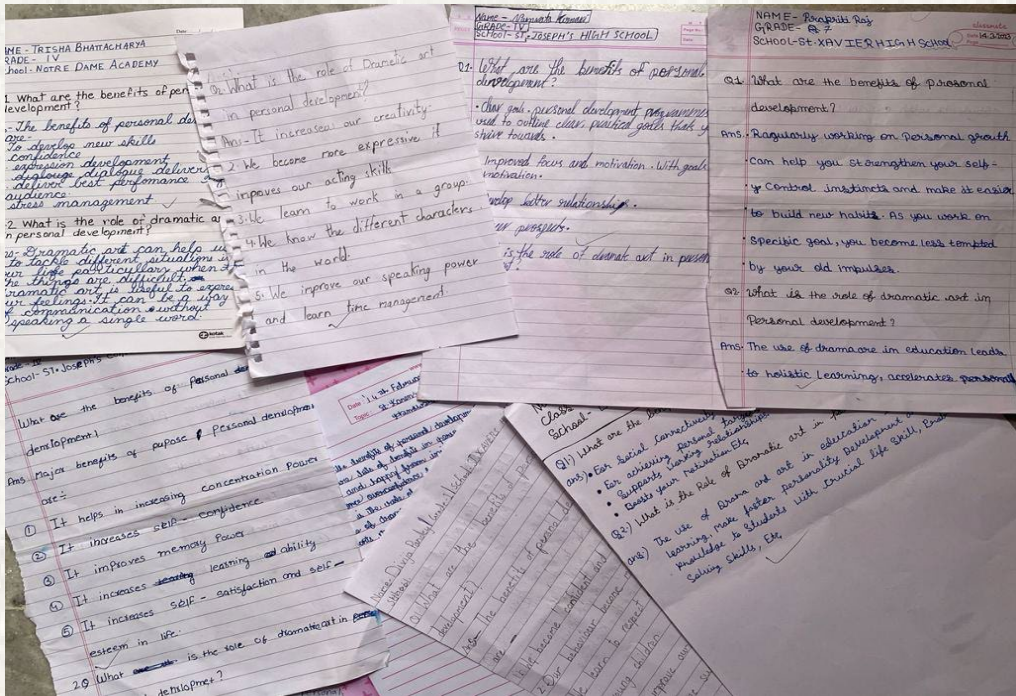 NAME - TRISHA BHATTACHARYA
GRADE - IV
School - NOTRE DAME ACADEMY
1 What are the benefits of
development?
- The benefits of personal
are:-
To develop new skills
confidence
expression development
dialogue delivery
deliver best perfomance
audience
stress management
2 What is the role of dramatic
in personal development?
Ans- Dramatic art can help us
to tackle different situations
our life particullary when
the things are difficult.
Dramatic art is useful to express
our feelings. It can be a way
of communication without
speaking a single word.
kotak
Q2. What is the role of Dramatic art
in personal development?
Ans- It increased our creativity.
2. We become more expressive it
inpoves our acting skills
3. We learn to work in a group.
4. We know the different characters
in the world.
5. We improve our speaking power
and learn time management
Name - Namrata Kumari
GRADE - IV
SCHOOL - ST. JOSEPH'S HIGH SCHOOL
Q1. What are the benefits of personal
development?
• Clear goals. personal development programmes
used to outline clear, practical goals that
strive towards.
Improved focus and motivation. With goals
motivation.
better relationships.
is the role of dramatic art in
NAME - Prapriti Raj
GRADE - 7
SCHOOL - St. XAVIER HIGH SCHOOL
classmate
Date 14.2.2023
Page
Q1. What are the benefits of prosonal
development?
Ans. Ragularly working on Personal growth
can help you strengthen your self-
control instincts and make it easier
to build new habits. As you work on
specific goal, you become less tempted
by your old impulses.
Q2 What is the role of dramatic art in
Personal development?
Ans. The use of drama are in education leads
to holistic Learning, accelerates personal
School - ST. Joseph's
What are the benefits of Personal
development?
Ans Major benefits of pupose Personal development
are:-
① It helps in increasing concentration Power
② It increases self - confidence
③ It improves memory Power
④ It increases learning ability
⑤ It increases self - satisfaction and self -
esteem in life.
2Q What is the role of dramatic art in
development?
Date 14th February
Topic
Name:- Divya
School
Q1 What are the benefits of
development?
Ans- The benefits of personal
are
become confident and
2. Our behaviour become
learn to respect
children
improve our
Class
School -
Q1) What are the
ans) • For Social Connectivity
• For achieving personal targets
• Supports working relationships
• Boosts your Motivation Etc,
Q2) What is the Role of Dramatic art in
ans) The use of Drama and art in education
Learning, make faster personality Development
knowledge to Students with Crucial life Skill,
Solving Skills, Etc,